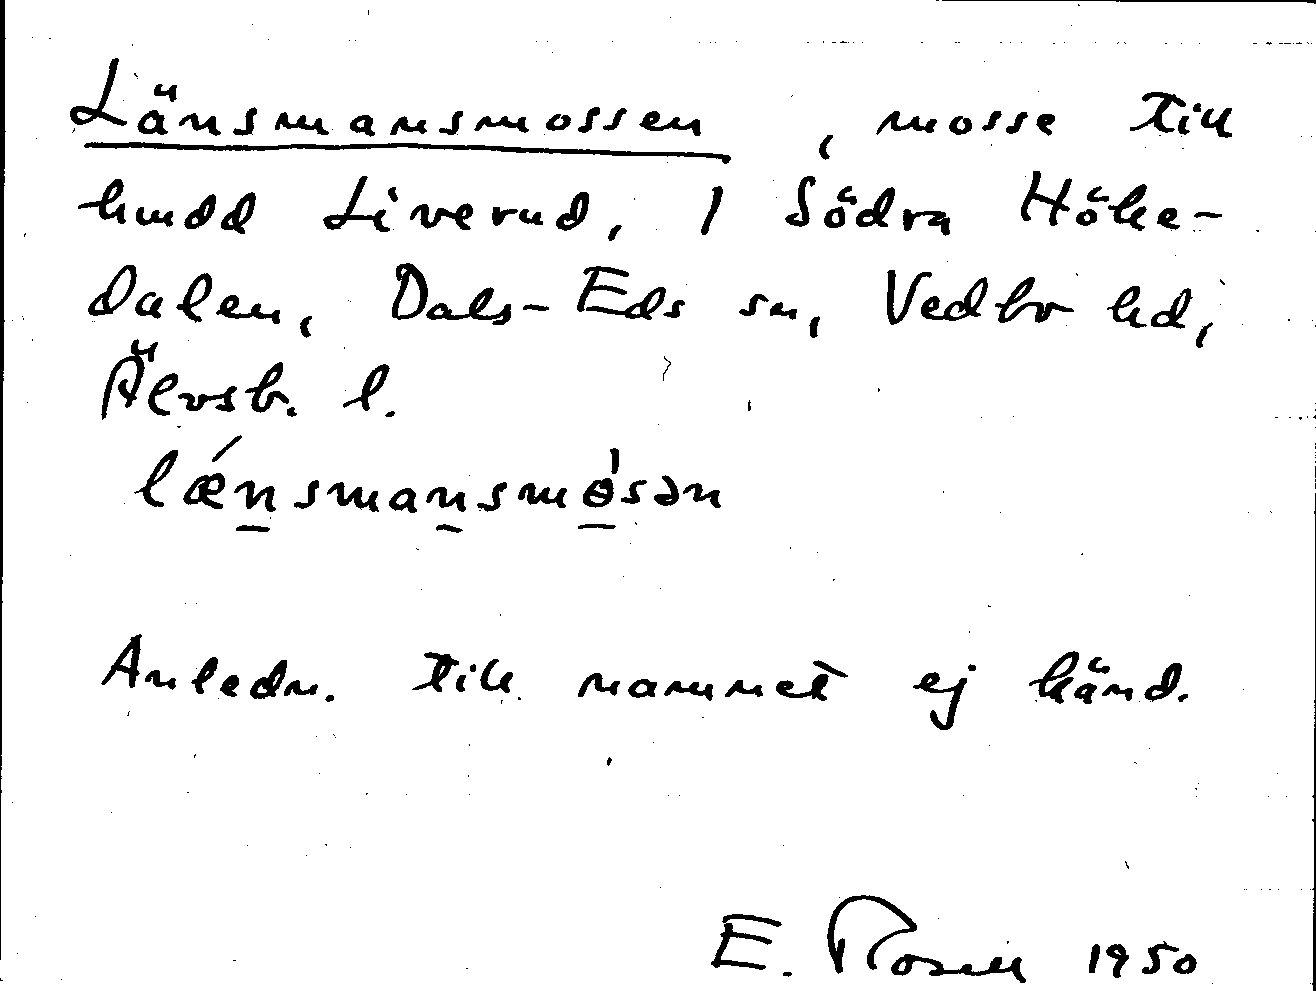 Länsmansmossen, mosse till
hmdd Liverud, 1 Södra Höke-
dalen, Dals-Eds sn, Vedbo hd,
Älvsb. l.
lǽnsmansmɵ̀sən
Anledn. till namnet ej känd.
E. Rosell 1950